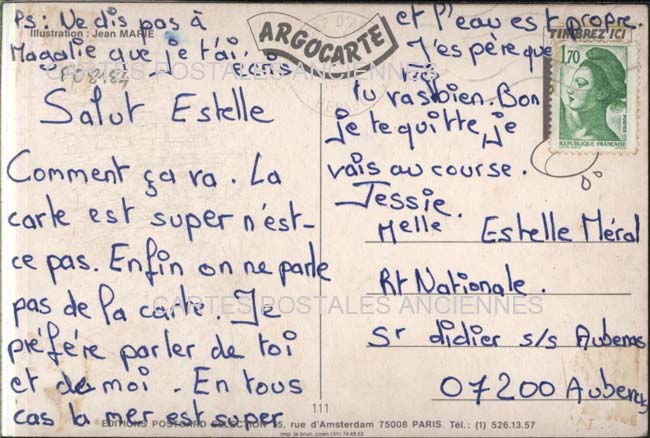 Ps: Ne dis pas à
Illustration : Jean MARIE
Magalie que je t'ai
Salut Estelle
Comment ça va. La
carte est super n'est-
ce pas. Enfin on ne parle
pas de la carte. Je
préfére parler de toi
et de moi. En tous
cas la mer est super
et l'eau est propre.
J'espère que
tu vas bien. Bon
je te quitte, je
vais au course.
Jessie.
ARGOCARTE
TIMBREZ ICI
1,70
POSTES
REPUBLIQUE FRANÇAISE
Melle Estelle Méral
Rt Nationale.
St didier s/s Aubenas
07200 Aubenas
CARTES POSTALES ANCIENNES
CARTES POSTALES ANCIENNES
111
©EDITIONS POSTCARD SELECTION 35, rue d'Amsterdam 75008 PARIS. Tél.: (1) 526.13.57